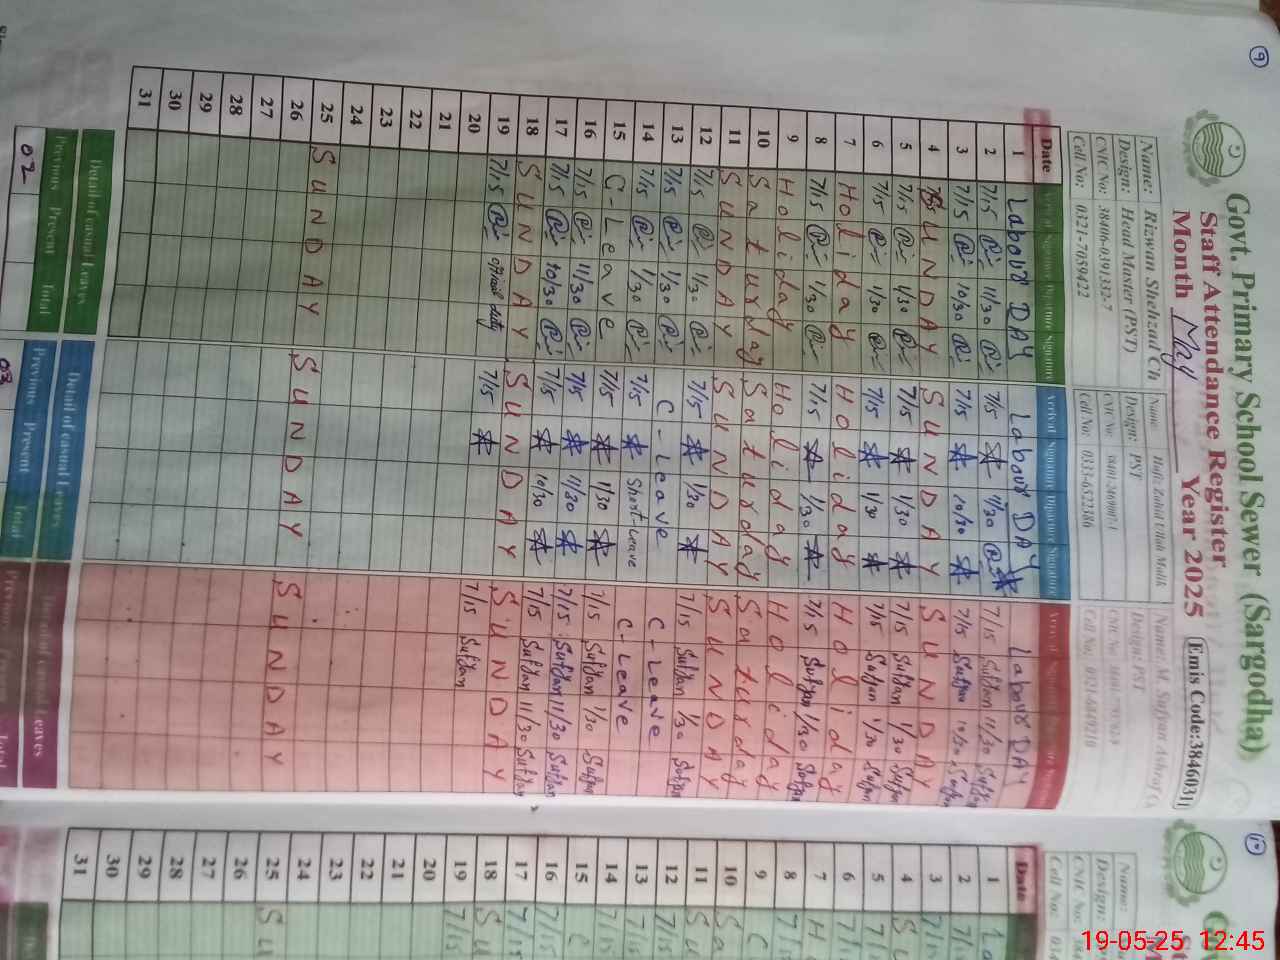 9
Govt. Primary School Sewer (Sargodha)
Staff Attendance Register
Month May Year 2025 Emis Code:38460311
Name: Rizwan Shehzad Ch
Design: Head Master (PST)
CNIC No: 38406-0391332-7
Cell No: 0321-7059422
Name: Hafiz Zahid Ullah Malik
Design: PST
CNIC No:
Cell No: 0333-6522386
Name: M. Sufyan Ashraf
Design: PST
CNIC No:
Cell No:
Date Arrival Signature Diparture Signature Arrival Signature Diparture Signature Arrival Signature
1 Labour DAY Labour DAY Labour DAY
2 7/15 11/30 7/15 11/30 7/15 Sufyan 11/30 Sufyan
3 7/15 10/30 7/15 10/30 7/15 Sufyan 10/30 Sufyan
4 SUNDAY SUNDAY SUNDAY
5 7/15 1/30 7/15 1/30 7/15 Sufyan 1/30 Sufyan
6 7/15 1/30 7/15 1/30 7/15 Sufyan 1/30 Sufyan
7 Holiday Holiday Holiday
8 7/15 1/30 7/15 1/30 7/15 Sufyan 1/30 Sufyan
9 Holiday Holiday Holiday
10 Saturday Saturday Saturday
11 SUNDAY SUNDAY SUNDAY
12 7/15 1/30 7/15 1/30 7/15 Sufyan 1/30 Sufyan
13 7/15 1/30 C-Leave C-Leave
14 7/15 1/30 7/15 Short-Leave C-Leave
15 C-Leave 7/15 1/30 7/15 Sufyan 1/30 Sufyan
16 7/15 11/30 7/15 11/30 7/15 Sufyan 11/30 Sufyan
17 7/15 10/30 7/15 10/30 7/15 Sufyan 11/30 Sufyan
18 SUNDAY SUNDAY SUNDAY
19 7/15 official duty 7/15 7/15 Sufyan
20
21
22
23
24
25 SUNDAY SUNDAY SUNDAY
26
27
28
29
30
31
Detail of casual Leaves Detail of casual Leaves Detail of casual Leaves
Previous Present Total Previous Present Total Previous Present Total
02 03
10
Name:
Design:
CNIC No:
Cell No:
Date
1 La
2 7/1
3 7/1
4 S
5 7
6 7/1
7 H
8 7/1
9 C
10 Sa
11 Su
12 7/15
13 7/1
14 7/15
15 C
16 7/15
17 7/15
18 Su
19 7/15
20
21
22
23
24
25 Su
26
27
28
29
30
31
19-05-25 12:45